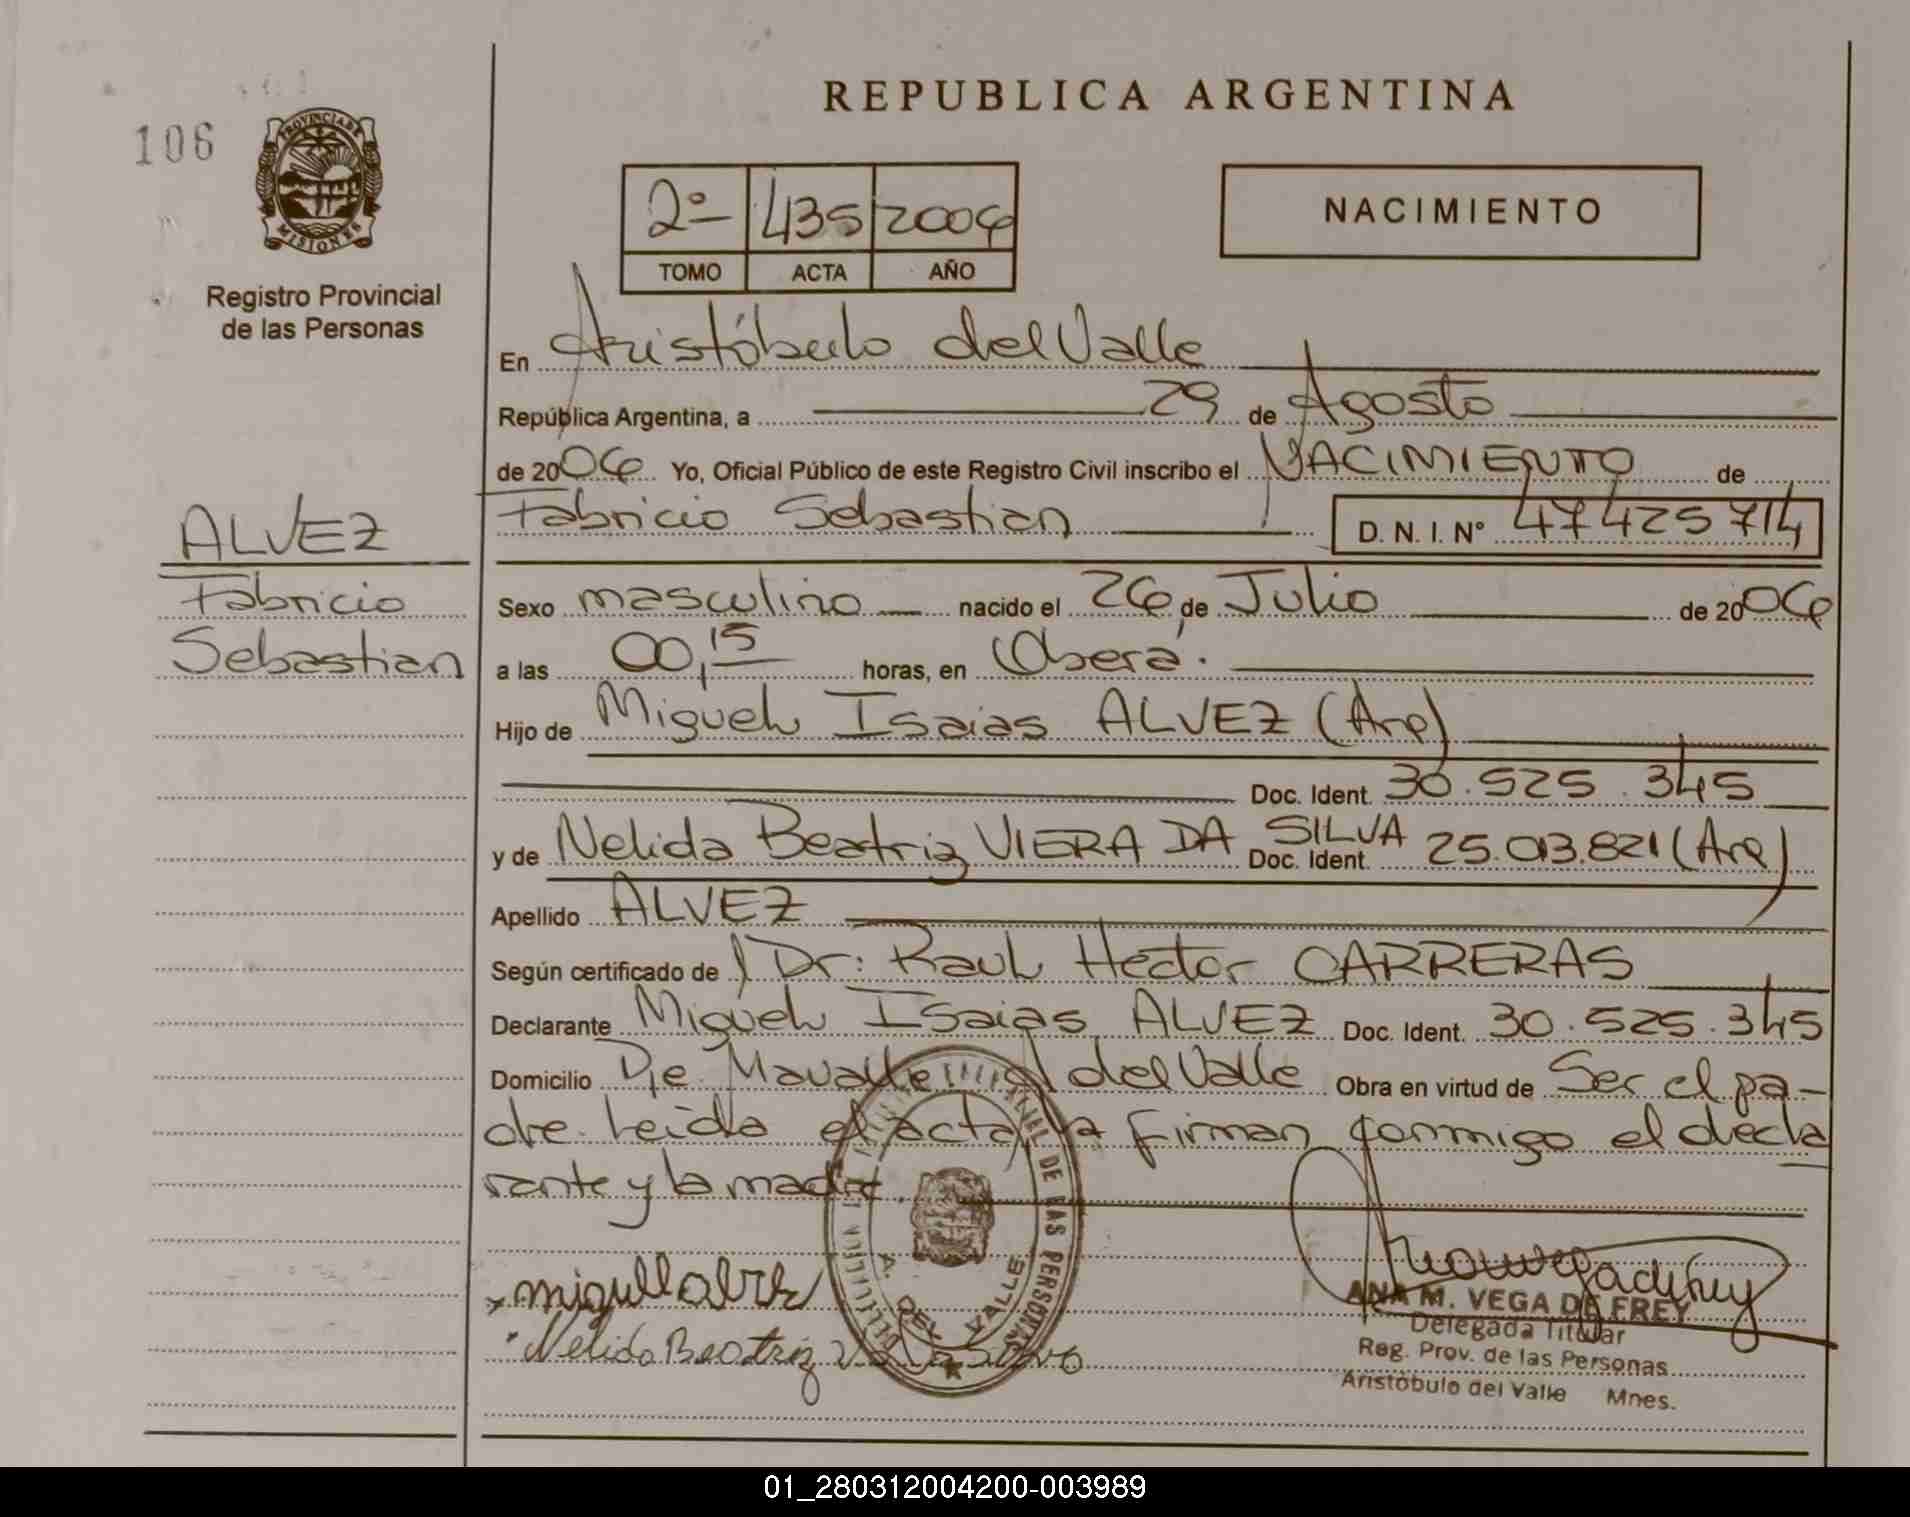 REPUBLICA ARGENTINA
106
PROVINCIA DE
MISIONES
Registro Provincial
de las Personas
2º 435 2006
TOMO ACTA AÑO
NACIMIENTO
En Aristóbulo del Valle
República Argentina, a 29 de Agosto
de 2006 Yo, Oficial Público de este Registro Civil inscribo el NACIMIENTO de
Fabricio Sebastian D. N. I. Nº 47425714
ALVEZ
Fabricio
Sebastian
Sexo masculino nacido el 26 de Julio de 2006
a las 00,15 horas, en Oberá.
Hijo de Miguel Isaias ALVEZ (Arg)
Doc. Ident. 30.525.345
y de Nelida Beatriz VIERA DA SILVA Doc. Ident. 25.013.821 (Arg)
Apellido ALVEZ
Según certificado de Dr: Raul Hector CARRERAS
Declarante Miguel Isaias ALVEZ Doc. Ident. 30.525.345
Domicilio del Valle Obra en virtud de Ser el pa-
dre. Leida el acta la firman conmigo el decla
rante y la madre.
DE LAS PERSONAS
A. DEL VALLE
Nelida Beatriz
ANA M. VEGA DE FREY
Delegada Titular
Reg. Prov. de las Personas
Aristóbulo del Valle Mnes.
01_280312004200-003989